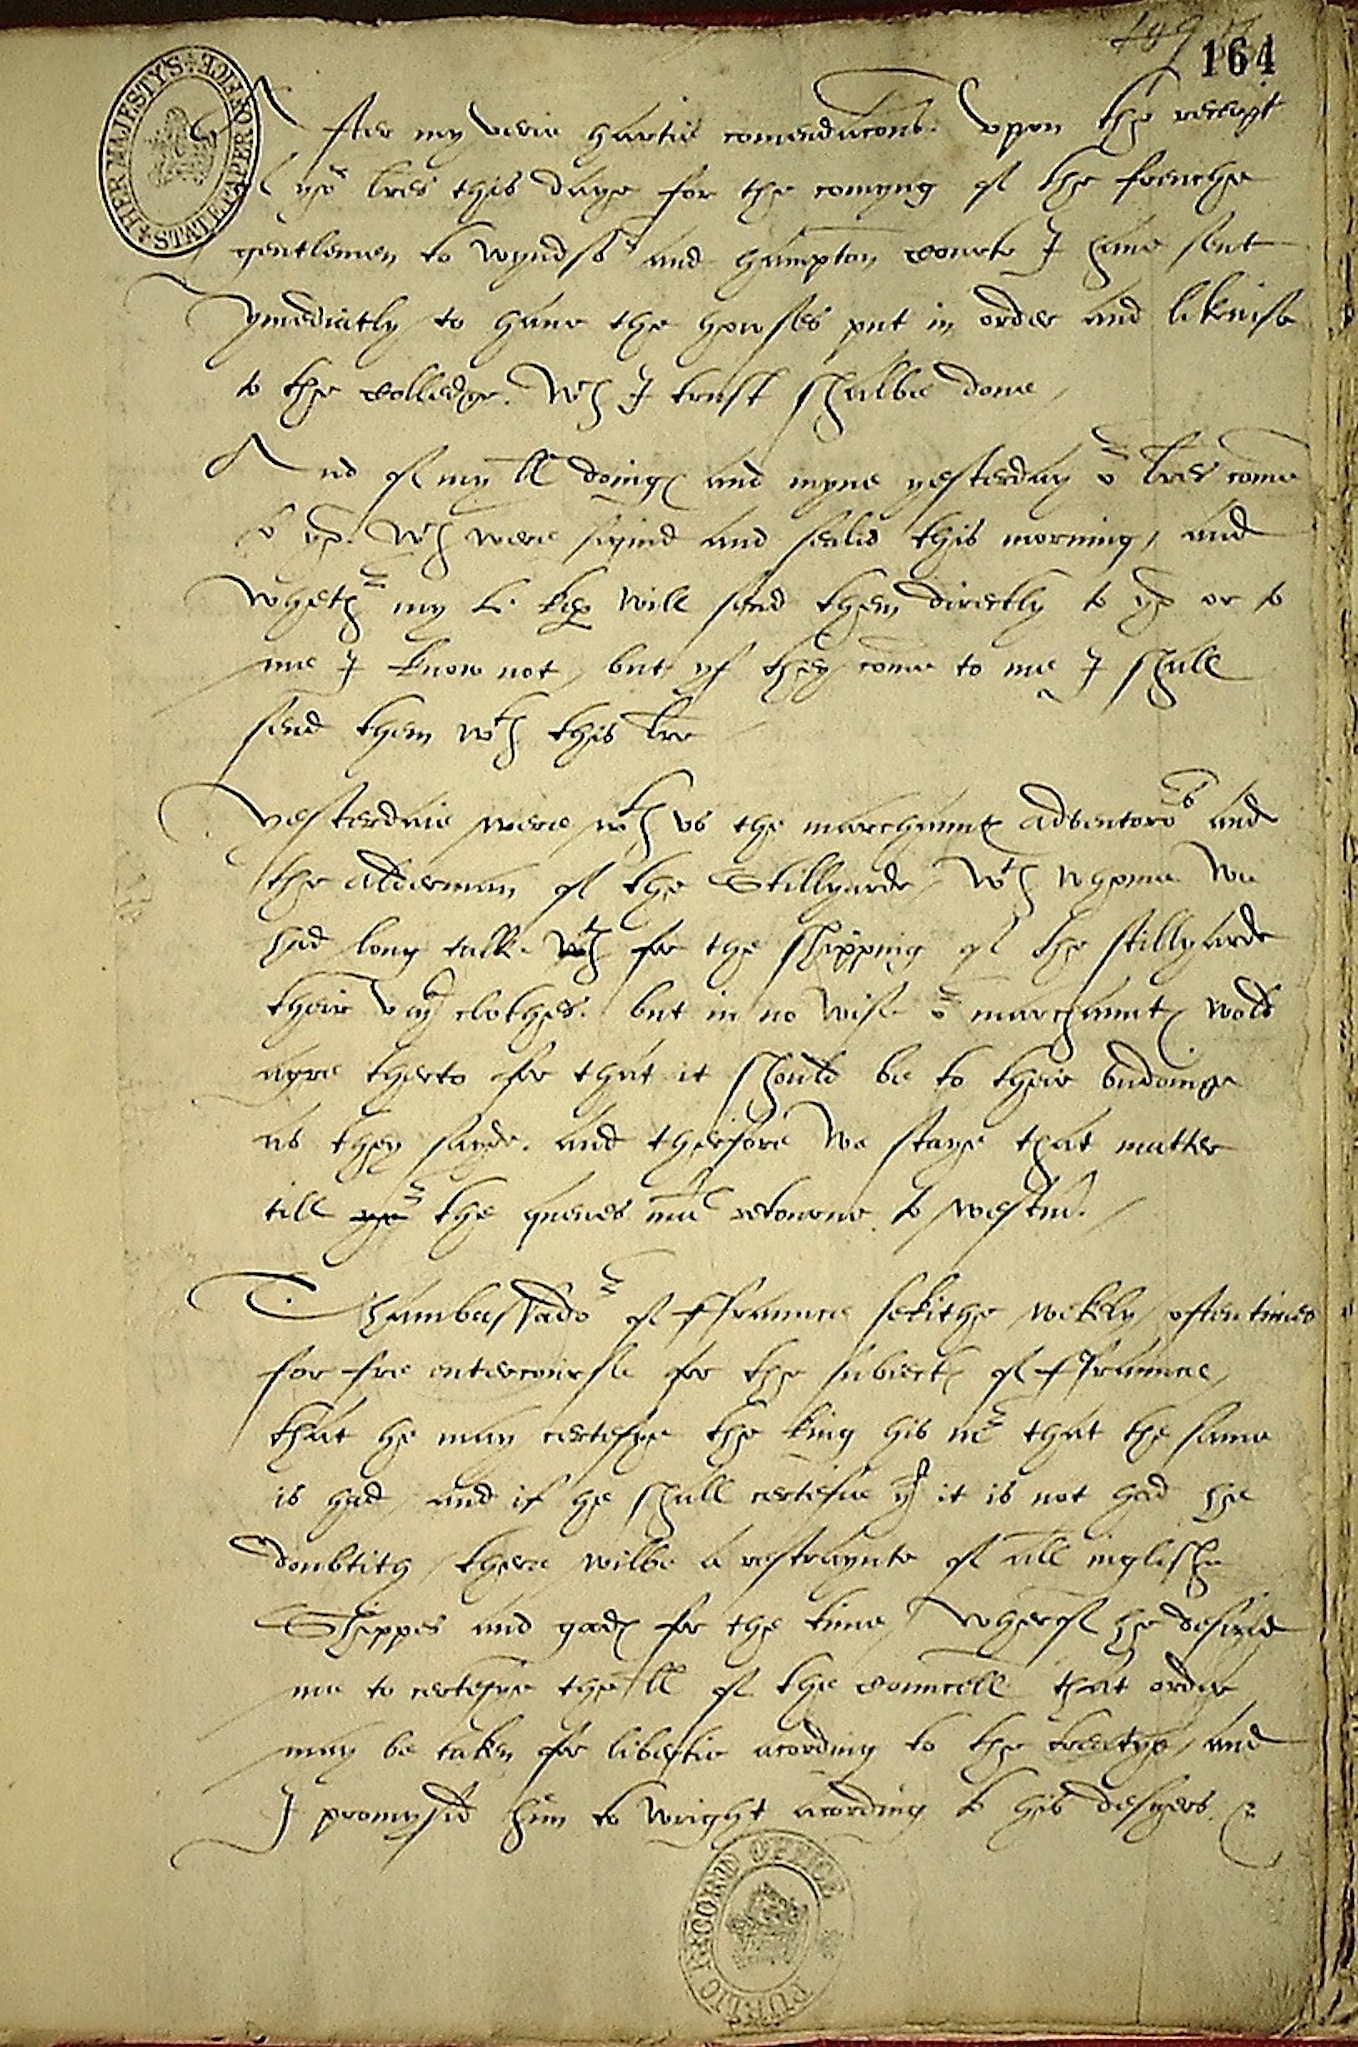 164
HER MAJESTY'S STATE PAPER OFFICE
After my verie hartie comendacons. vpon the receipt
of yor lres this daye for the comyng of the frenche
gentlemen to wyndsor and hampton courte I have sent
ymediatly to have the howses put in order and likewise
to the colledge. wch I trust shalbe done /
And of my ll doings and myne yesterday or lres come
to yow. wch were signid and sealid this morning / and
whethr my L. kep will send them directly to yow or to
me I know not / but yf they come to me I shall
send them wth this lre /
yesterdaie were wth vs the marchaunts adventorors and
the alderman of the Stillyarde / wth whome we
had long talke wth for the shipping of the stillyarde
their clothes. but in no wise or marchaunts wold
agre therto for that it should be to their vndoinge
as they sayde. and therfore we staye that matter
till yor the quenes mats retourne to westm. /
Thambassador of Ffraunce sekithe wekely / oftentimes
for fre entercourse for the subiects of Ffraunce /
that he may certefye the king his mr that the same
is had / and if he shall certefie yt it is not had he
doubtith / there wilbe a restraynte of all inglishe
Shippes and gads for the time / wherof he desired
me to certefye the ll of the councell that order
may be taken for libertie acording to the treatye / and
I promysid him to wright acording to his desyers.
PUBLIC RECORD OFFICE